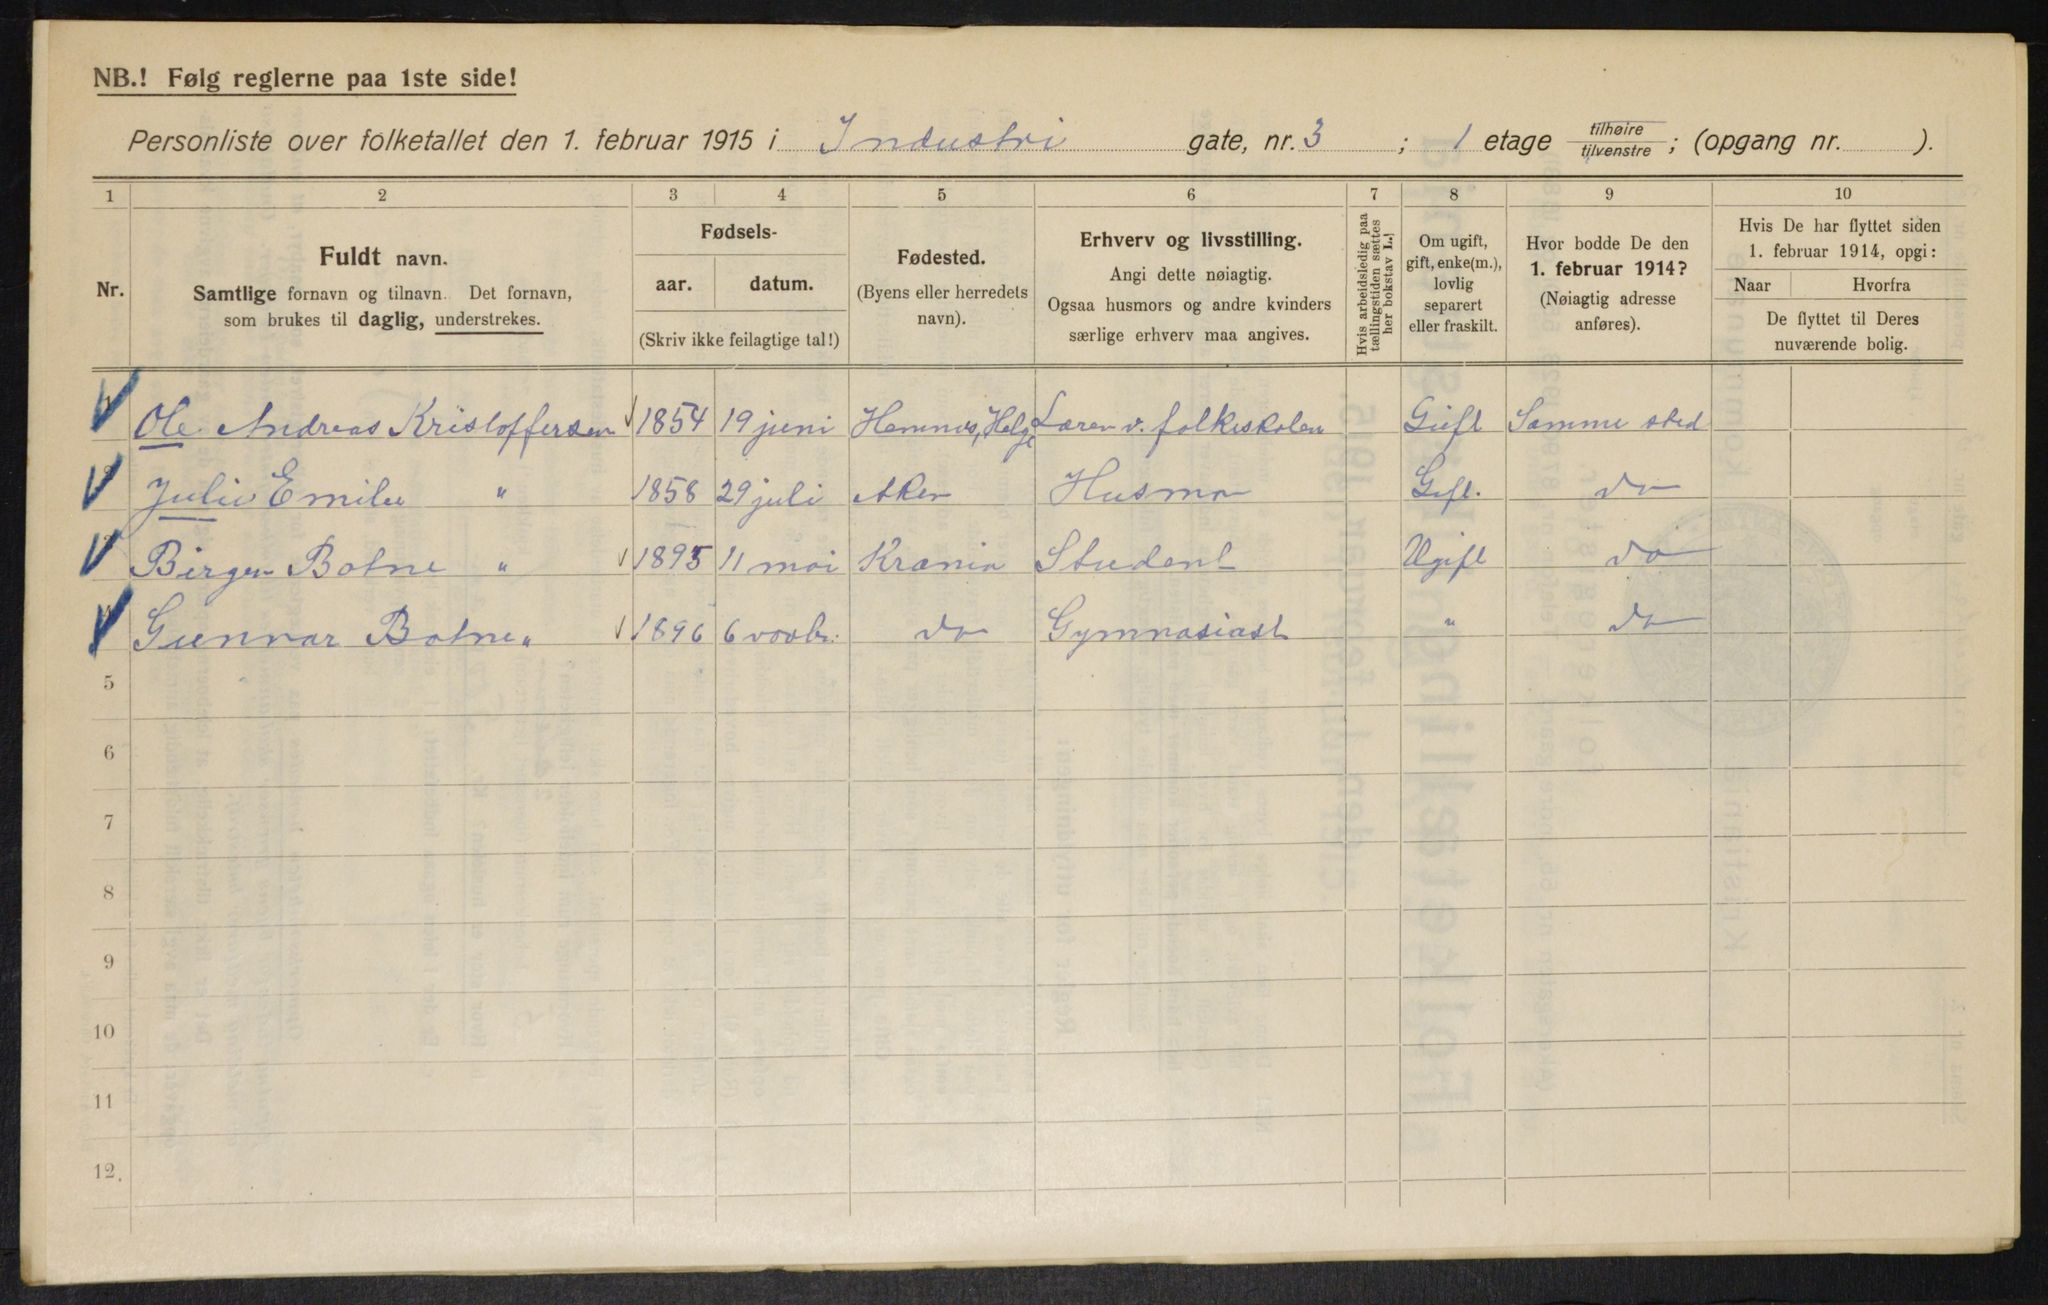 NB.! Følg reglerne paa 1ste side!
Personliste over folketallet den 1. februar 1915 i Industri gate, nr. 3 ; 1 etage tilhøire / tilvenstre ; (opgang nr. ).
1 2 3 4 5 6 7 8 9 10
Nr.
Fuldt navn.
Samtlige fornavn og tilnavn. Det fornavn,
som brukes til daglig, understrekes.
Fødsels-
aar. datum.
(Skriv ikke feilagtige tal!)
Fødested.
(Byens eller herredets
navn).
Erhverv og livsstilling.
Angi dette nøiagtig.
Ogsaa husmors og andre kvinders
særlige erhverv maa angives.
Hvis arbeidsledig paa
tællingstiden sættes
her bokstav L.!
Om ugift,
gift, enke(m.),
lovlig
separert
eller fraskilt.
Hvor bodde De den
1. februar 1914?
(Nøiagtig adresse
anføres).
Hvis De har flyttet siden
1. februar 1914, opgi:
Naar Hvorfra
De flyttet til Deres
nuværende bolig.
1 Ole Andreas Kristoffersen 1854 19 juni Hemnes, Helg. Lærer v. folkeskolen Gift Samme sted
2 Julie Emilie " 1858 29 juli Aker Husmor Gift. do
3 Birger Botne " 1895 11 mai Krania Student Ugift do
4 Gunnar Botne " 1896 6 novbr. do Gymnasiast " do
5
6
7
8
9
10
11
12.